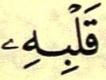 قَلْبِهِۦ